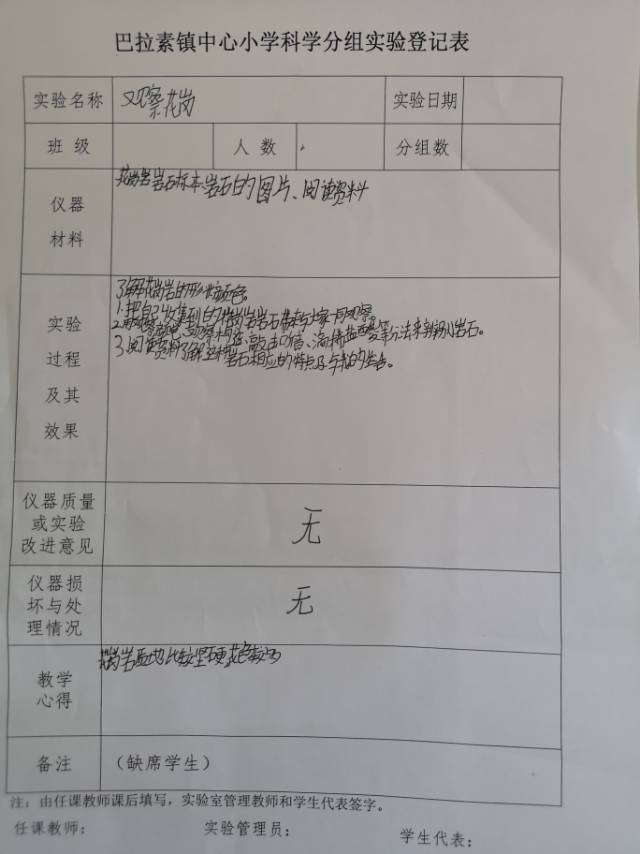 巴拉素镇中心小学科学分组实验登记表
实验名称 观察花岗 实验日期
班 级 人 数 分组数
仪器
材料
花岗岩岩石标本、岩石的图片、阅读资料
实验
过程
及其
效果
了解花岗岩的形状颜色。
1.把自己收集到的花岗岩岩石带来与大家一同观察
2. 敲击 滴稀盐酸等方法来辨别岩石。
3.阅读资料了解 岩石相应的特点及与我的生活。
仪器质量
或实验
改进意见
无
仪器损
坏与处
理情况
无
教学
心得
花岗岩质地比较坚硬,花色较多
备注 (缺席学生)
注:由任课教师课后填写,实验室管理教师和学生代表签字。
任课教师: 实验管理员: 学生代表: